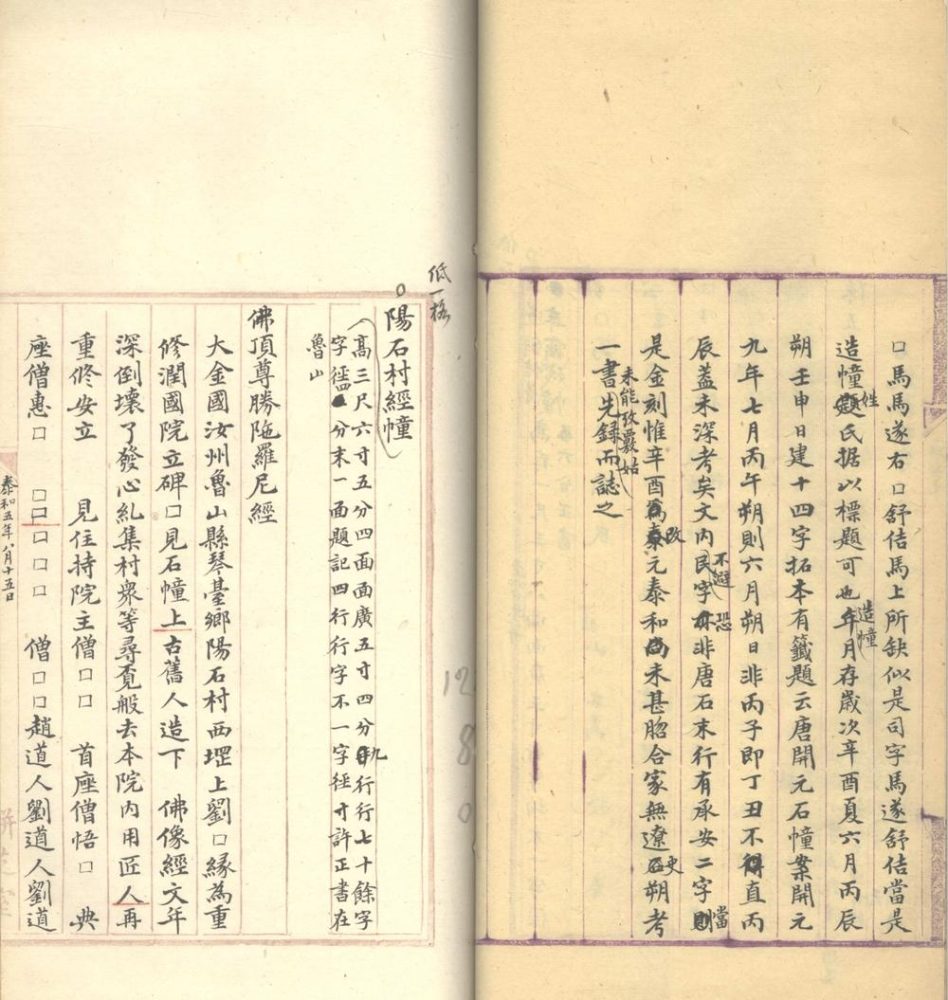 口馬馬遂右口舒佶馬上所缺似是司字馬遂舒佶當是
造幢姓氏据以標題可也造幢年月存歲次辛酉夏六月丙辰
朔壬申日建十四字拓本有籤題云唐開元石幢案開元
九年七月丙午朔則六月朔日非丙子即丁丑不得直丙
辰蓋未深考矣文內民字不避恐非唐石末行有承安二字則當
是金刻惟辛酉為改元泰和尚未甚脗合家無遼史朔考
一書未能攷覈姑先録而誌之
低一格
○陽石村經幢
(高三尺六寸五分四面面廣五寸四分九行行七十餘字
字徑四分末一面題記四行行字不一字徑寸許正書在
魯山
佛頂尊勝陁羅尼經
大金國汝州魯山縣琴臺鄉陽石村西堽上劉口緣為重
修潤國院立碑口見石幢上古舊人造下 佛像經文年
深倒壞了發心糺集村衆等尋覔般去本院內用匠人再
重修安立 見住持院主僧口口 首座僧悟口 典
座僧惠口 口口口口口 僧口口趙道人劉道人劉道
泰和五年八月十五日
1280